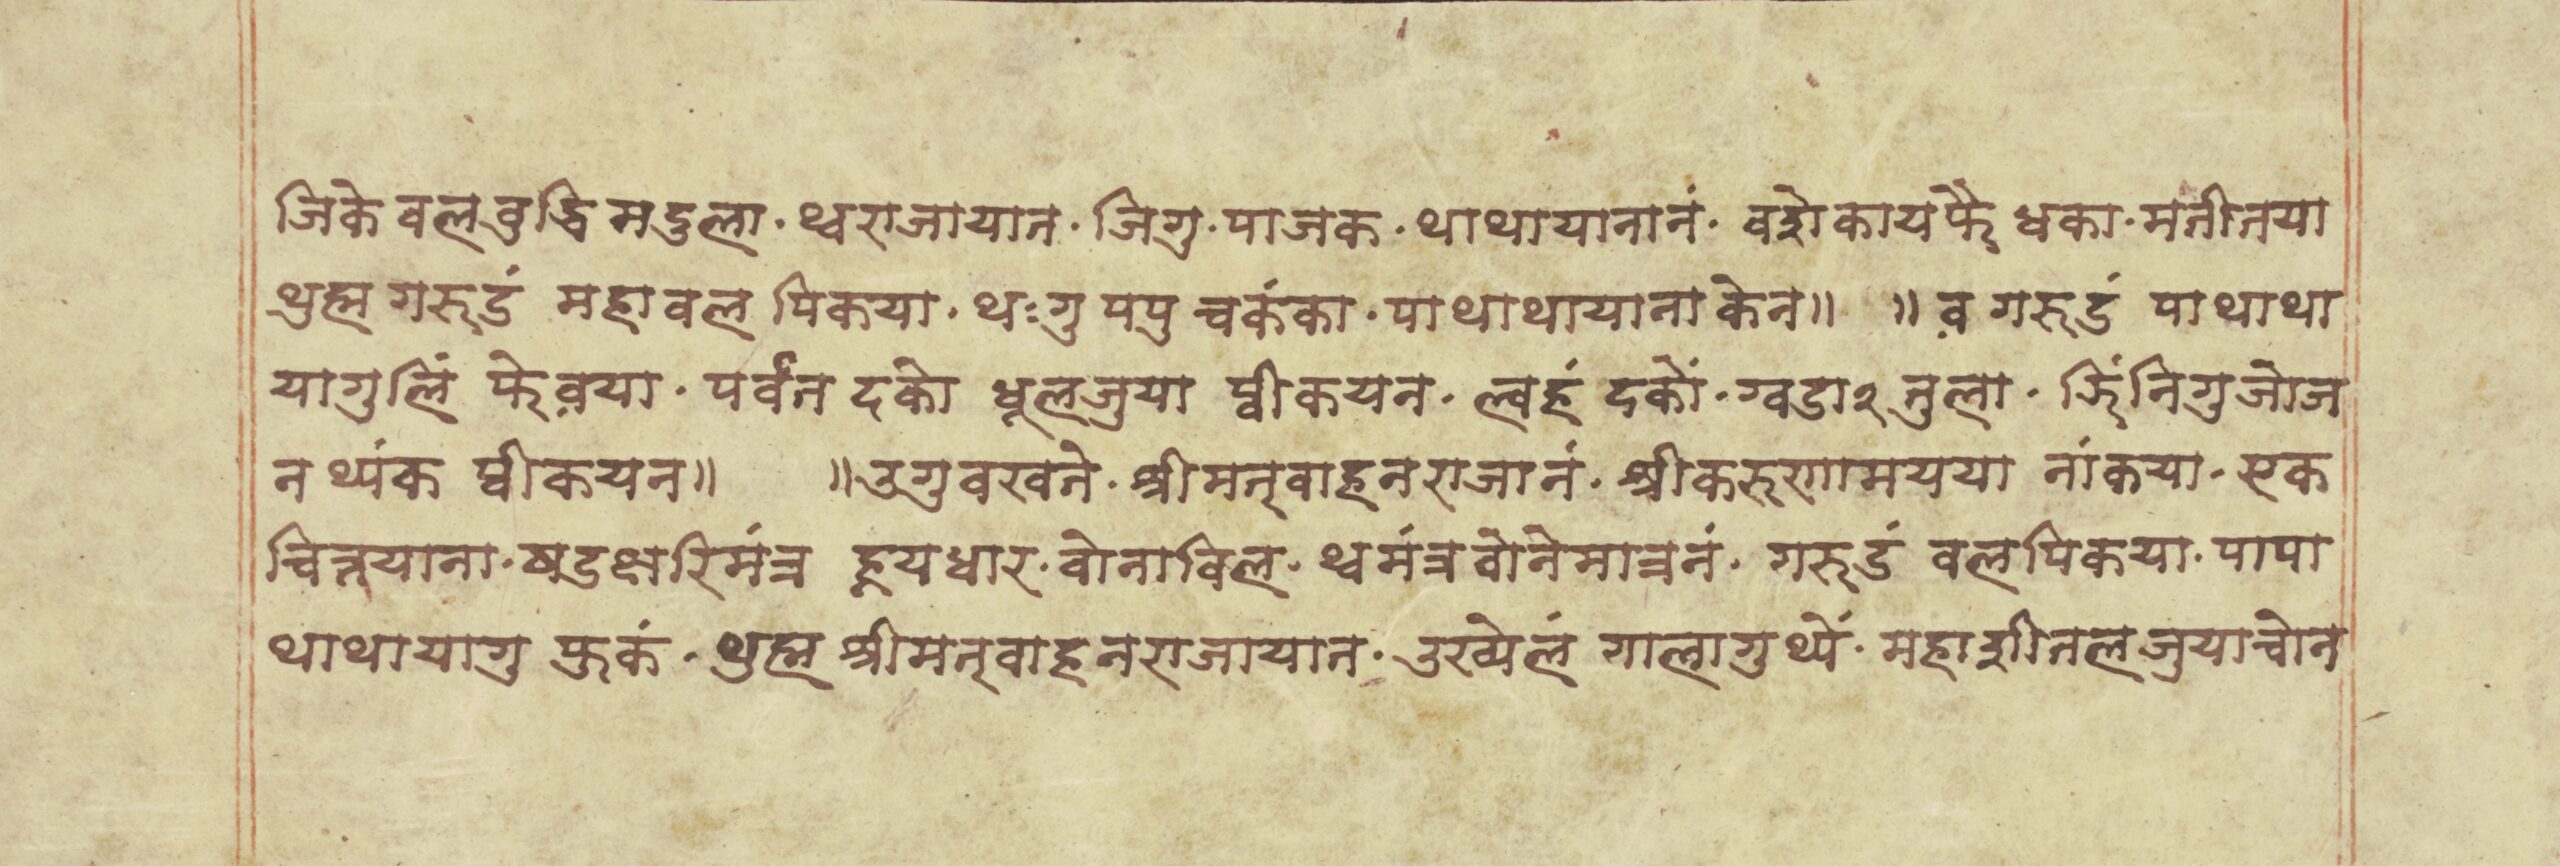 जिकेवलवुद्धिमदुला· थ्वराजायान· जिगु· पाजक· थाथायानानं· वशेकायफै धका· मतीतया
थुह्म गरूडं महावल पिकया· थःगु पपु च्वकंका· पाथाथायानाकेन॥ ॥ व़ गरूडं पाथाथा
यागुलिं फे व़या· पर्वत दको धूलजुया प्वीकयन· ल्वहं दकों· ग्वडा२ तुला· झिंनिगु जोज
न थ्यंक प्वीकयन॥ ॥उगुवखते· श्रीमत्वाहनराजानं· श्रीकरूणामयया नांकया· एक
चित्तयाना· षडक्षरिमंत्र हृयधार· वोनाविल· थ्वमंत्रवोनेमात्रनं· गरूडं वलपिकया· पापा
थाथायागु फुकं· थुह्म श्रीमत्वाहनराजायान· उख्येलं गालागुथ्यें· महाशीतलजुयाचोन